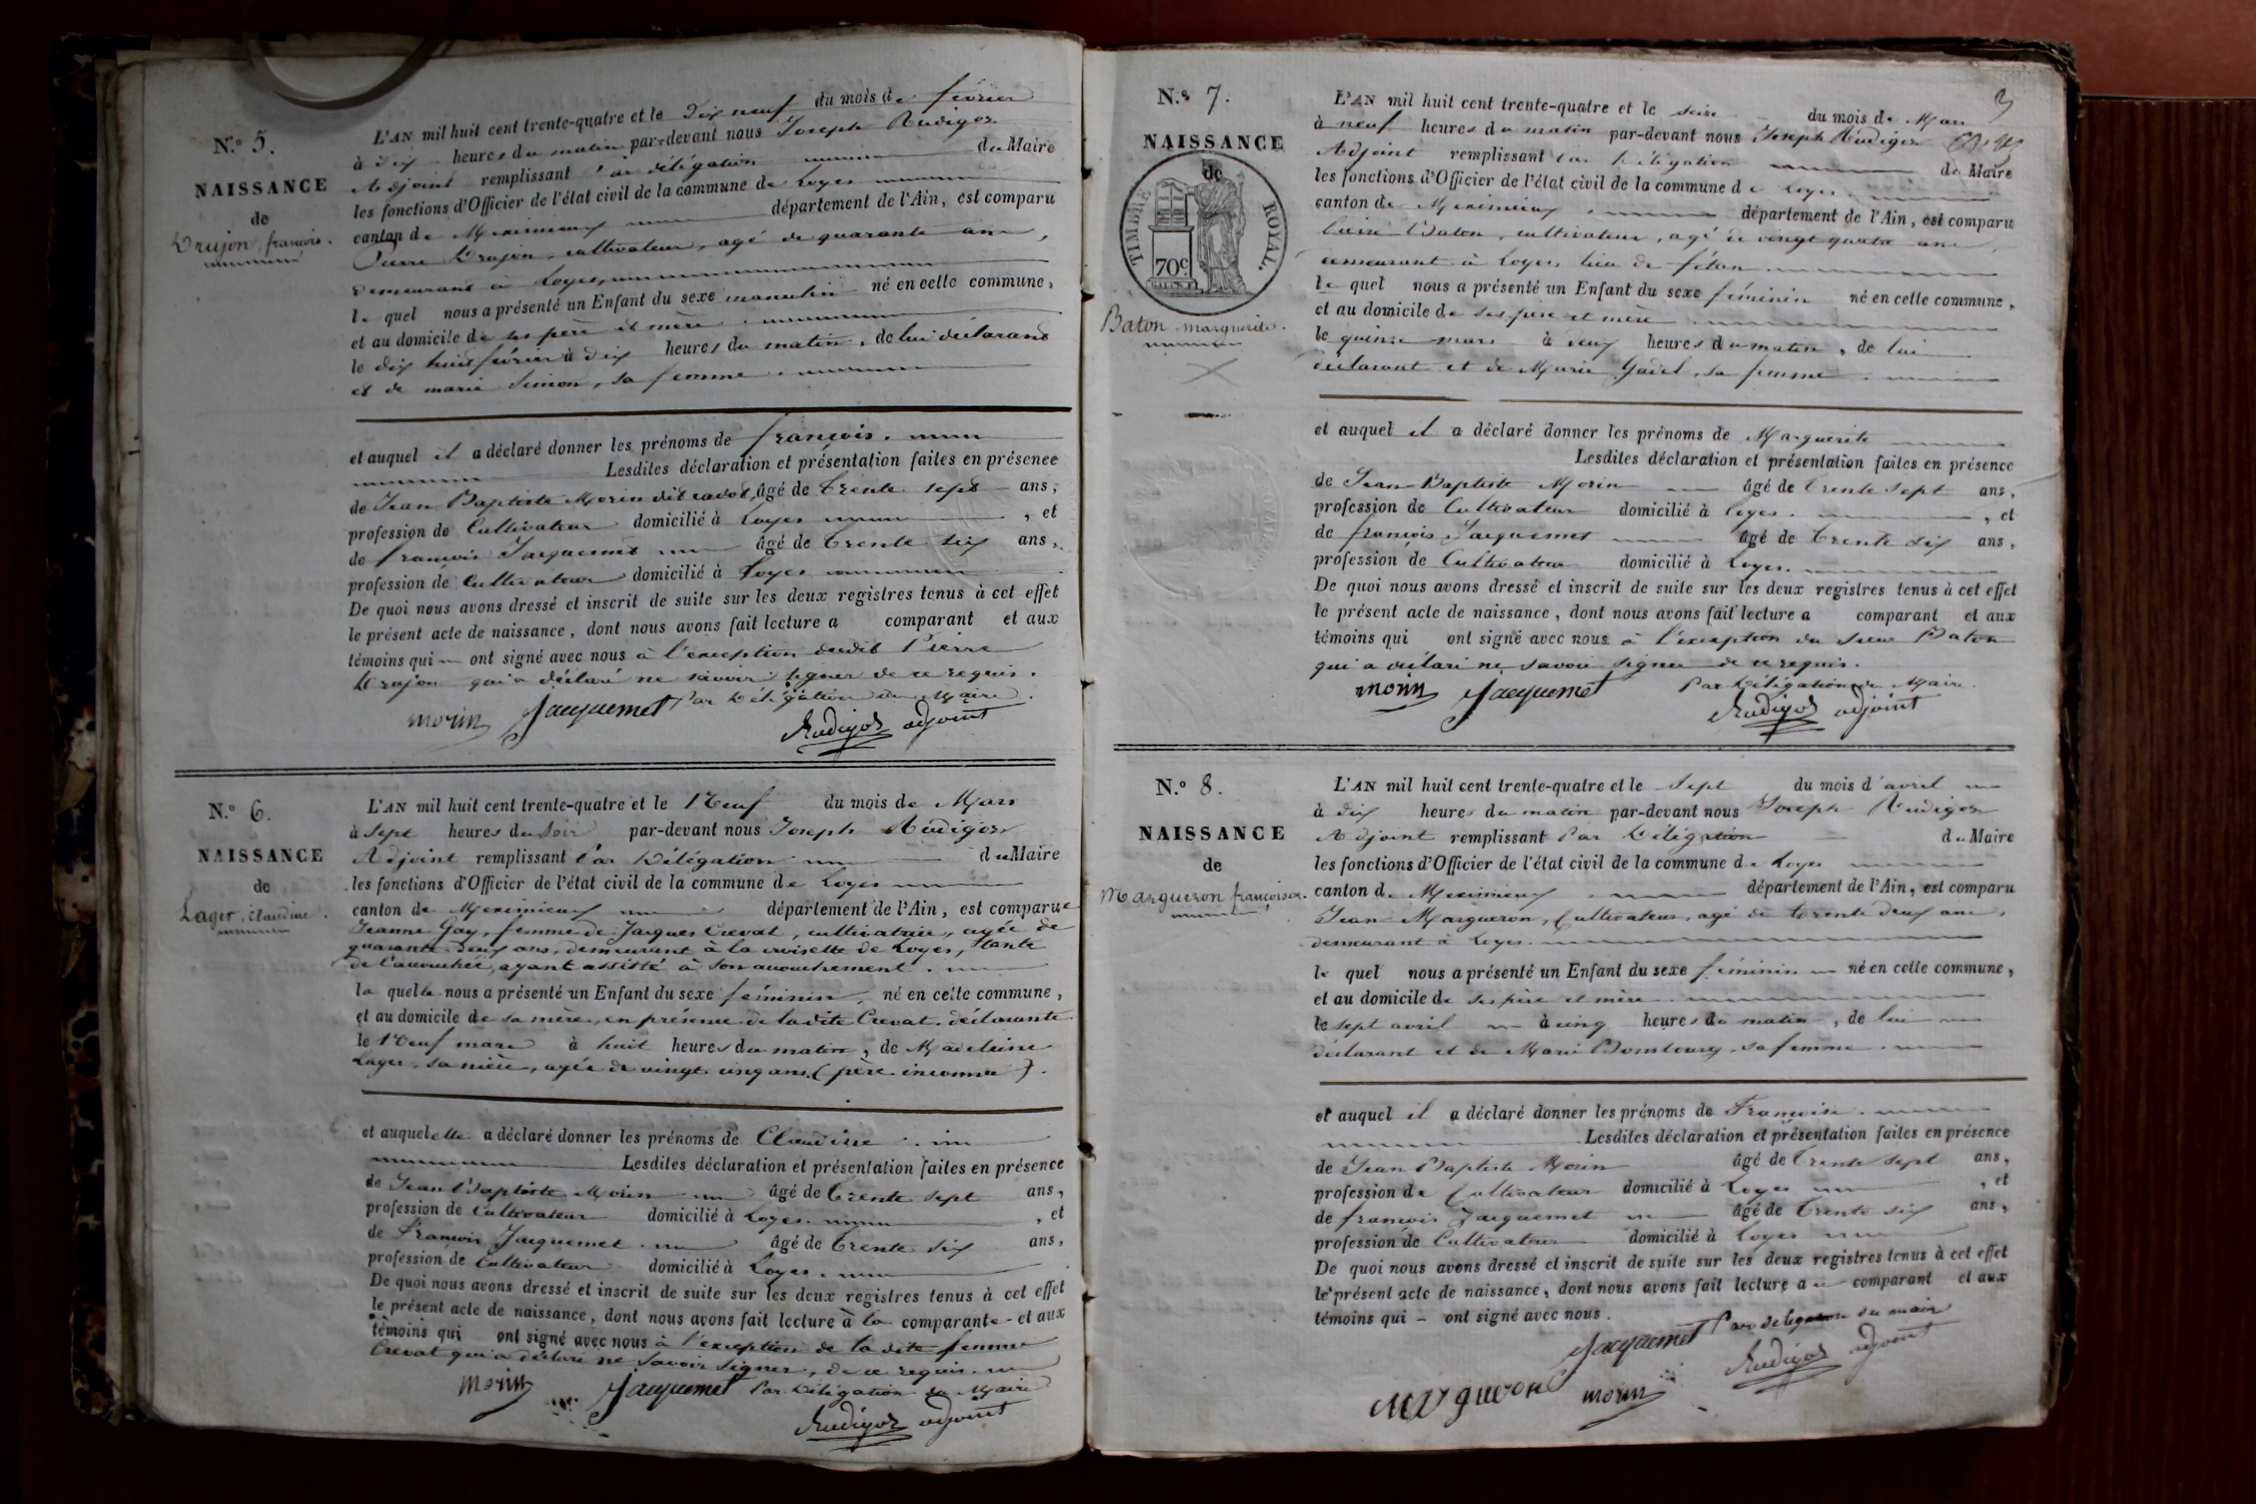 N.º 5.
NAISSANCE
de
Drujon, françois.
L'AN mil huit cent trente-quatre et le Dix neuf du mois de février
à dix heures du matin par-devant nous Joseph Rudigoz
Adjoint remplissant Par délégation du Maire
les fonctions d'Officier de l'état civil de la commune de Loyes
canton de Meximieux département de l'Ain, est comparu
Pierre Drujon, cultivateur, agé de quarante ans,
demeurant à Loyes,
le quel nous a présenté un Enfant du sexe masculin né en cette commune,
et au domicile de ses père et mère,
le dix huit février à dix heures du matin, de lui déclarant
et de marie Simon, sa femme.
et auquel il a déclaré donner les prénoms de françois.
Lesdites déclaration et présentation faites en présence
de Jean Baptiste Morin dit cadet, âgé de trente sept ans,
profession de Cultivateur domicilié à Loyes, et
de françois Jacquemet âgé de trente six ans,
profession de Cultivateur domicilié à Loyes
De quoi nous avons dressé et inscrit de suite sur les deux registres tenus à cet effet
le présent acte de naissance, dont nous avons fait lecture a comparant et aux
témoins qui ont signé avec nous à l'exception dudit Pierre
Drujon qui a déclaré ne savoir signer de ce requis.
morin Jacquemet Par Délégation du Maire.
Rudigoz adjoint
N.º 6.
NAISSANCE
de
Lager, claudine.
L'AN mil huit cent trente-quatre et le Neuf du mois de Mars
à sept heures du soir par-devant nous Joseph Rudigoz
Adjoint remplissant Par Délégation du Maire
les fonctions d'Officier de l'état civil de la commune de Loyes
canton de Meximieux département de l'Ain, est comparue
Jeanne Gay, femme de Jacques Crevat, cultivatrice, agée de
quarante deux ans, demeurant à la croisette de Loyes, tante
de l'accouchée, ayant assisté à son accouchement.
la quelle nous a présenté un Enfant du sexe féminin, né en cette commune,
et au domicile de sa mère, en présence de ladite Crevat, déclarante
le Neuf mars à huit heures du matin, de Madeleine
Lager, sa nièce, agée de vingt cinq ans (père inconnu).
et auquel elle a déclaré donner les prénoms de Claudine.
Lesdites déclaration et présentation faites en présence
de Jean Baptiste Morin âgé de trente sept ans,
profession de Cultivateur domicilié à Loyes, et
de François Jacquemet âgé de trente six ans,
profession de Cultivateur domicilié à Loyes.
De quoi nous avons dressé et inscrit de suite sur les deux registres tenus à cet effet
le présent acte de naissance, dont nous avons fait lecture à la comparante et aux
témoins qui ont signé avec nous à l'exception de la dite femme
Crevat qui a déclaré ne savoir signer, de ce requis.
Morin Jacquemet Par Délégation du Maire
Rudigoz adjoint
3
N.º 7.
NAISSANCE
de
TIMBRE ROYAL.
70c
Baton marguerite.
L'AN mil huit cent trente-quatre et le seize du mois de Mars
à neuf heures du matin par-devant nous Joseph Rudigoz
Adjoint remplissant Par Délégation du Maire
les fonctions d'Officier de l'état civil de la commune de Loyes
canton de Meximieux, département de l'Ain, est comparu
Baton, cultivateur, agé de vingt quatre ans,
demeurant à Loyes, lieu de
le quel nous a présenté un Enfant du sexe féminin né en cette commune,
et au domicile de ses père et mère
le quinze mars à deux heures du matin, de lui
déclarant et de Marie Gadel, sa femme.
et auquel il a déclaré donner les prénoms de Marguerite
Lesdites déclaration et présentation faites en présence
de Jean-Baptiste Morin âgé de trente sept ans,
profession de Cultivateur domicilié à Loyes, et
de françois Jacquemet âgé de trente six ans,
profession de Cultivateur domicilié à Loyes.
De quoi nous avons dressé et inscrit de suite sur les deux registres tenus à cet effet
le présent acte de naissance, dont nous avons fait lecture a comparant et aux
témoins qui ont signé avec nous à l'exception du sieur Baton
qui a déclaré ne savoir signer de ce requis.
morin Jacquemet Par Délégation du Maire.
Rudigoz adjoint
N.º 8.
NAISSANCE
de
Margueron françoise.
L'AN mil huit cent trente-quatre et le Sept du mois d'avril
à dix heures du matin par-devant nous Joseph Rudigoz
Adjoint remplissant Par Délégation du Maire
les fonctions d'Officier de l'état civil de la commune de Loyes
canton de Meximieux, département de l'Ain, est comparu
Jean Margueron, Cultivateur, agé de trente deux ans,
demeurant à Loyes.
le quel nous a présenté un Enfant du sexe féminin né en cette commune,
et au domicile de ses père et mère
le sept avril à cinq heures du matin, de lui
déclarant et de Marie sa femme.
et auquel il a déclaré donner les prénoms de Françoise.
Lesdites déclaration et présentation faites en présence
de Jean Baptiste Morin âgé de trente sept ans,
profession de Cultivateur domicilié à Loyes, et
de françois Jacquemet âgé de trente six ans,
profession de Cultivateur domicilié à Loyes
De quoi nous avons dressé et inscrit de suite sur les deux registres tenus à cet effet
le présent acte de naissance, dont nous avons fait lecture a comparant et aux
témoins qui ont signé avec nous.
Jacquemet Par délégation du maire
Rudigoz adjoint
Margueron morin